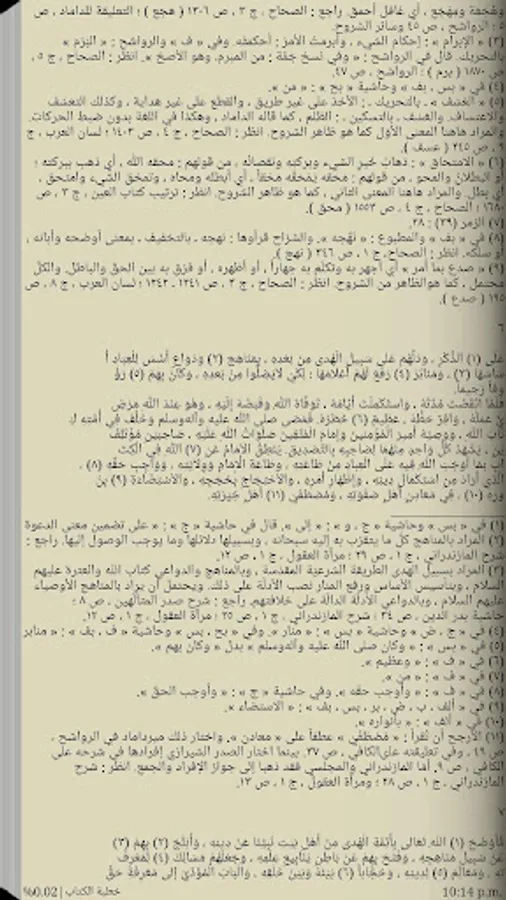 وهَجعة ومِهْجَع ، أي غافل أحمق. راجع : الصحاح ، ج ٣ ، ص ١٣٠٦ ( هجع ) ؛ التعليقة للداماد ، ص
٥ ؛ الرواشح ، ص ٤٥ وسائر الشروح.
(٣) « الإبرام » : إحكام الشيء ، وأبرمتُ الأمر : أحكمته. وفي « ف » والرواشح : « البَرَم »
بالتحريك. قال في الرواشح : « وفي نسخ جمّة : من المبرم. وهو الأصحّ ». انظر : الصحاح ، ج ٥ ،
ص ١٨٧٠ ( برم ) ؛ الرواشح ، ص ٤٧.
(٤) في « بس ، بف » وحاشية « بح » : « من ».
(٥) « العَسَف » ـ بالتحريك ـ : الأخذ على غير طريق ، والقطع على غير هداية ، وكذلك التعسّف
والاعتساف. والعسف ـ بالتسكين ـ : الظلم ، كما قاله الداماد ، وهكذا في اللغة بدون ضبط الحركات.
والمراد هاهنا المعنى الأوّل كما هو ظاهر الشروح. انظر : الصحاح ، ج ٤ ، ص ١٤٠٣ ؛ لسان العرب ، ج
٩ ، ص ٢٤٥ ( عسف ).
(٦) « الامتحاق » : ذهاب خير الشيء وبركته ونقصانُه ، من قولهم : محقه الله ، أي ذهب ببركته ؛
أو البطلان والمحو ، من قولهم : مَحَقه يَمْحَقُه مَحْقاً ، أي أبطله ومحاه ، وتمحّق الشيء وامتحق ،
أي بطل. والمراد هاهنا المعنى الثاني ، كما هو ظاهر الشروح. انظر : ترتيب كتاب العين ، ج ٣ ، ص
١٦٨٠ ؛ الصحاح ، ج ٤ ، ص ١٥٥٣ ( محق ).
(٧) الزمر (٣٩) : ٢٨.
(٨) في « بف » والمطبوع : « نَهَّجه ». والشرّاح قرأوها : نهجه ـ بالتخفيف ـ بمعنى أوضحه وأبانه ،
أو سلكه. انظر : الصحاح، ج ١ ، ص ٣٤٦ ( نهج ).
(٩) « صدع بما أمر » أي أجهر به وتكلّم به جهاراً ، أو أظهره ، أو فرّق به بين الحقّ والباطل. والكلّ
محتمل ، كما هوالظاهر من الشروح. انظر : الصحاح ، ج ٣ ، ص ١٢٤١ ـ ١٢٤٢ ؛ لسان العرب ، ج ٨ ، ص
١٩٥ ( صدع ).
٦
عَلَى (١) الذِّكْرِ ، ودَلَّهُمْ عَلى سَبِيلِ الْهُدى مِنْ بَعْدِهِ ، بِمَنَاهِجَ (٢) وَدَوَاعٍ أَسَّسَ لِلْعِبَادِ أَ
سَاسَهَا (٣) ، وَمَنَابِرَ (٤) رَفَعَ لَهُمْ أَعْلَامَهَا ؛ لِكَيْ لَايَضِلُّوا مِنْ بَعْدِهِ ، وَكَانَ بِهِمْ (٥) رَؤُ
وفاً رَحِيماً.
فَلَمَّا انْقَضَتْ مُدَّتُهُ ، وَاسْتَكْمَلَتْ أَيَّامُهُ ، تَوَفَّاهُ اللهُ وَقَبَضَهُ إِلَيْهِ ، وَهُوَ عِنْدَ اللهِ مَرْضِ
يٌّ عَمَلُهُ ، وَافِرٌ حَظُّهُ ، عَظِيمٌ (٦) خَطَرُهُ. فَمَضى صلى‌ الله ‌عليه ‌وآله‌وسلم وَخَلَّفَ فِي أُمَّتِهِ كِ
تَابَ اللهِ ، وَوَصِيَّهُ أَمِيرَ الْمُؤْمِنِينَ وَإِمَامَ الْمُتَّقِينَ صَلَوَاتُ اللهِ عَلَيْهِ ، صَاحِبَيْنِ مُؤْتَلِفَ
يْنِ ، يَشْهَدُ كُلُّ وَاحِدٍ مِنْهُمَا لِصَاحِبِهِ بِالتَّصْدِيقِ. يَنْطِقُ الْإِمَامُ عَنِ (٧) اللهِ فِي الْكِتَ
ابِ بِمَا أَوْجَبَ اللهُ فِيهِ عَلَى الْعِبَادِ مِنْ طَاعَتِهِ ، وَطَاعَةِ الْإِمَامِ وَوِلَايَتِهِ ، وَوَاجِبِ حَقِّهِ (٨) ،
الَّذِي أَرَادَ مِنِ اسْتِكْمَالِ دِينِهِ ، وَإِظْهَارِ أَمْرِهِ ، وَالِاحْتِجَاجِ بِحُجَجِهِ ، وَالِاسْتِضَاءَةِ (٩) بِنُ
ورِهِ (١٠) ، فِي مَعَادِنِ أَهْلِ صَفْوَتِهِ ، وَمُصْطَفَيْ (١١) أَهْلِ خِيَرَتِهِ.
(١) في « بس » وحاشية « ج ، و » : « إلى ». قال في حاشية « ج » : « على تضمين معنى الدعوة
(٢) المراد بالمناهج كلّ ما يتقرّب به إليه سبحانه ، وبسبيلها دلائلها وما يوجب الوصول إليها. راجع :
شرح المازندراني ، ج ١ ، ص ٢٦ ؛ مرآة العقول ، ج ١ ، ص ١٢.
(٣) المراد بسبيل الهدى الطريقة الشرعيّة المقدّسة ، وبالمناهج والدواعي كتاب الله والعترة عليهم
السلام ، وبتأسيس الأساس ورفع المنار نصب الأدلّة على ذلك. ويحتمل أن يراد بالمناهج الأوصياء
عليهم السلام ، وبالدواعي الأدلّة الدالّة على خلافتهم. راجع : شرح صدر المتألّهين ، ص ٨ ؛
حاشية بدر الدين ، ص ٣٤ ؛ شرح المازندراني ، ج ١ ، ص ٢٥ ؛ مرآة العقول ، ج ١ ، ص ١٢.
(٤) في « ج ، ض » وحاشية « بس » : « منار ». وفي « بح ، بس » وحاشية « ف ، بف » : « منابر
(٥) في « بس » : « وكان صلى الله عليه وآله‌وسلم » بدل « وكان بهم ».
(٦) في « ف » : « وعظيم ».
(٧) في « ف » : « من ».
(٨) في « ف » : « وأوجب حقّه ». وفي حاشية « ج » : « وأوجب الحقّ ».
(٩) في « ألف ، ب ، ض ، بر ، بس ، بف » : « الاستضاء ».
(١٠) في « ألف » : « بأنواره ».
(١١) الأرجح أن تُقرأ : « مُصْطَفَيْ » عطفاً على « معادن ». واختار ذلك ميرداماد في الرواشح ،
ص ٤٩ ، وفي تعليقته على‌الكافي ، ص ٣٧. بينما اختار الصدر الشيرازي إفرادها في شرحه على
الكافي ، ص ٩. أمّا المازندراني والمجلسي فقد ذهبا إلى جواز الإفراد والجمع. انظر : شرح
المازندراني ، ج ١ ، ص ٢٨ ؛ ومرآة العقول ، ج ١ ، ص ١٣.
٧
فَأَوْضَحَ (١) اللهُ تَعَالى بِأَئِمَّةِ الْهُدى مِنْ أَهْلِ بَيْتِ نَبِيِّنَا عَنْ دِينِهِ ، وَأَبْلَجَ (٢) بِهِمْ (٣)
عَنْ سَبِيلِ مَنَاهِجِهِ ، وَفَتَحَ بِهِمْ عَنْ بَاطِنِ يَنَابِيعِ عِلْمِهِ ، وَجَعَلَهُمْ مَسَالِكَ (٤) لِمَعْرِفَ
تِهِ ، وَمَعَالِمَ (٥) لِدِينِهِ ، وَحُجَّاباً (٦) بَيْنَهُ وَبَيْنَ خَلْقِهِ ، وَالْبَابَ الْمُؤَدِّيَ إِلى مَعْرِفَةِ حَقِّ
10:14 p.m.
خطبة الكتاب | 0.02%